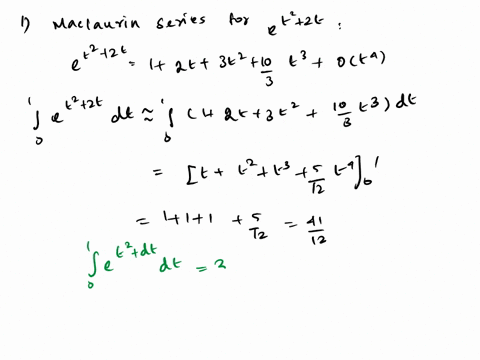 1) Maclaurin series for e^{t²+2t} :
e^{t²+2t} = 1 + 2t + 3t² + 10/3 t³ + O(t⁴)
∫₀¹ e^{t²+2t} dt ≈ ∫₀¹ (1+ 2t + 3t² + 10/3 t³) dt
= [t + t² + t³ + 5/12 t⁴]₀¹
= 1+1+1 + 5/12 = 41/12
∫₀¹ e^{t²+dt} dt = 3